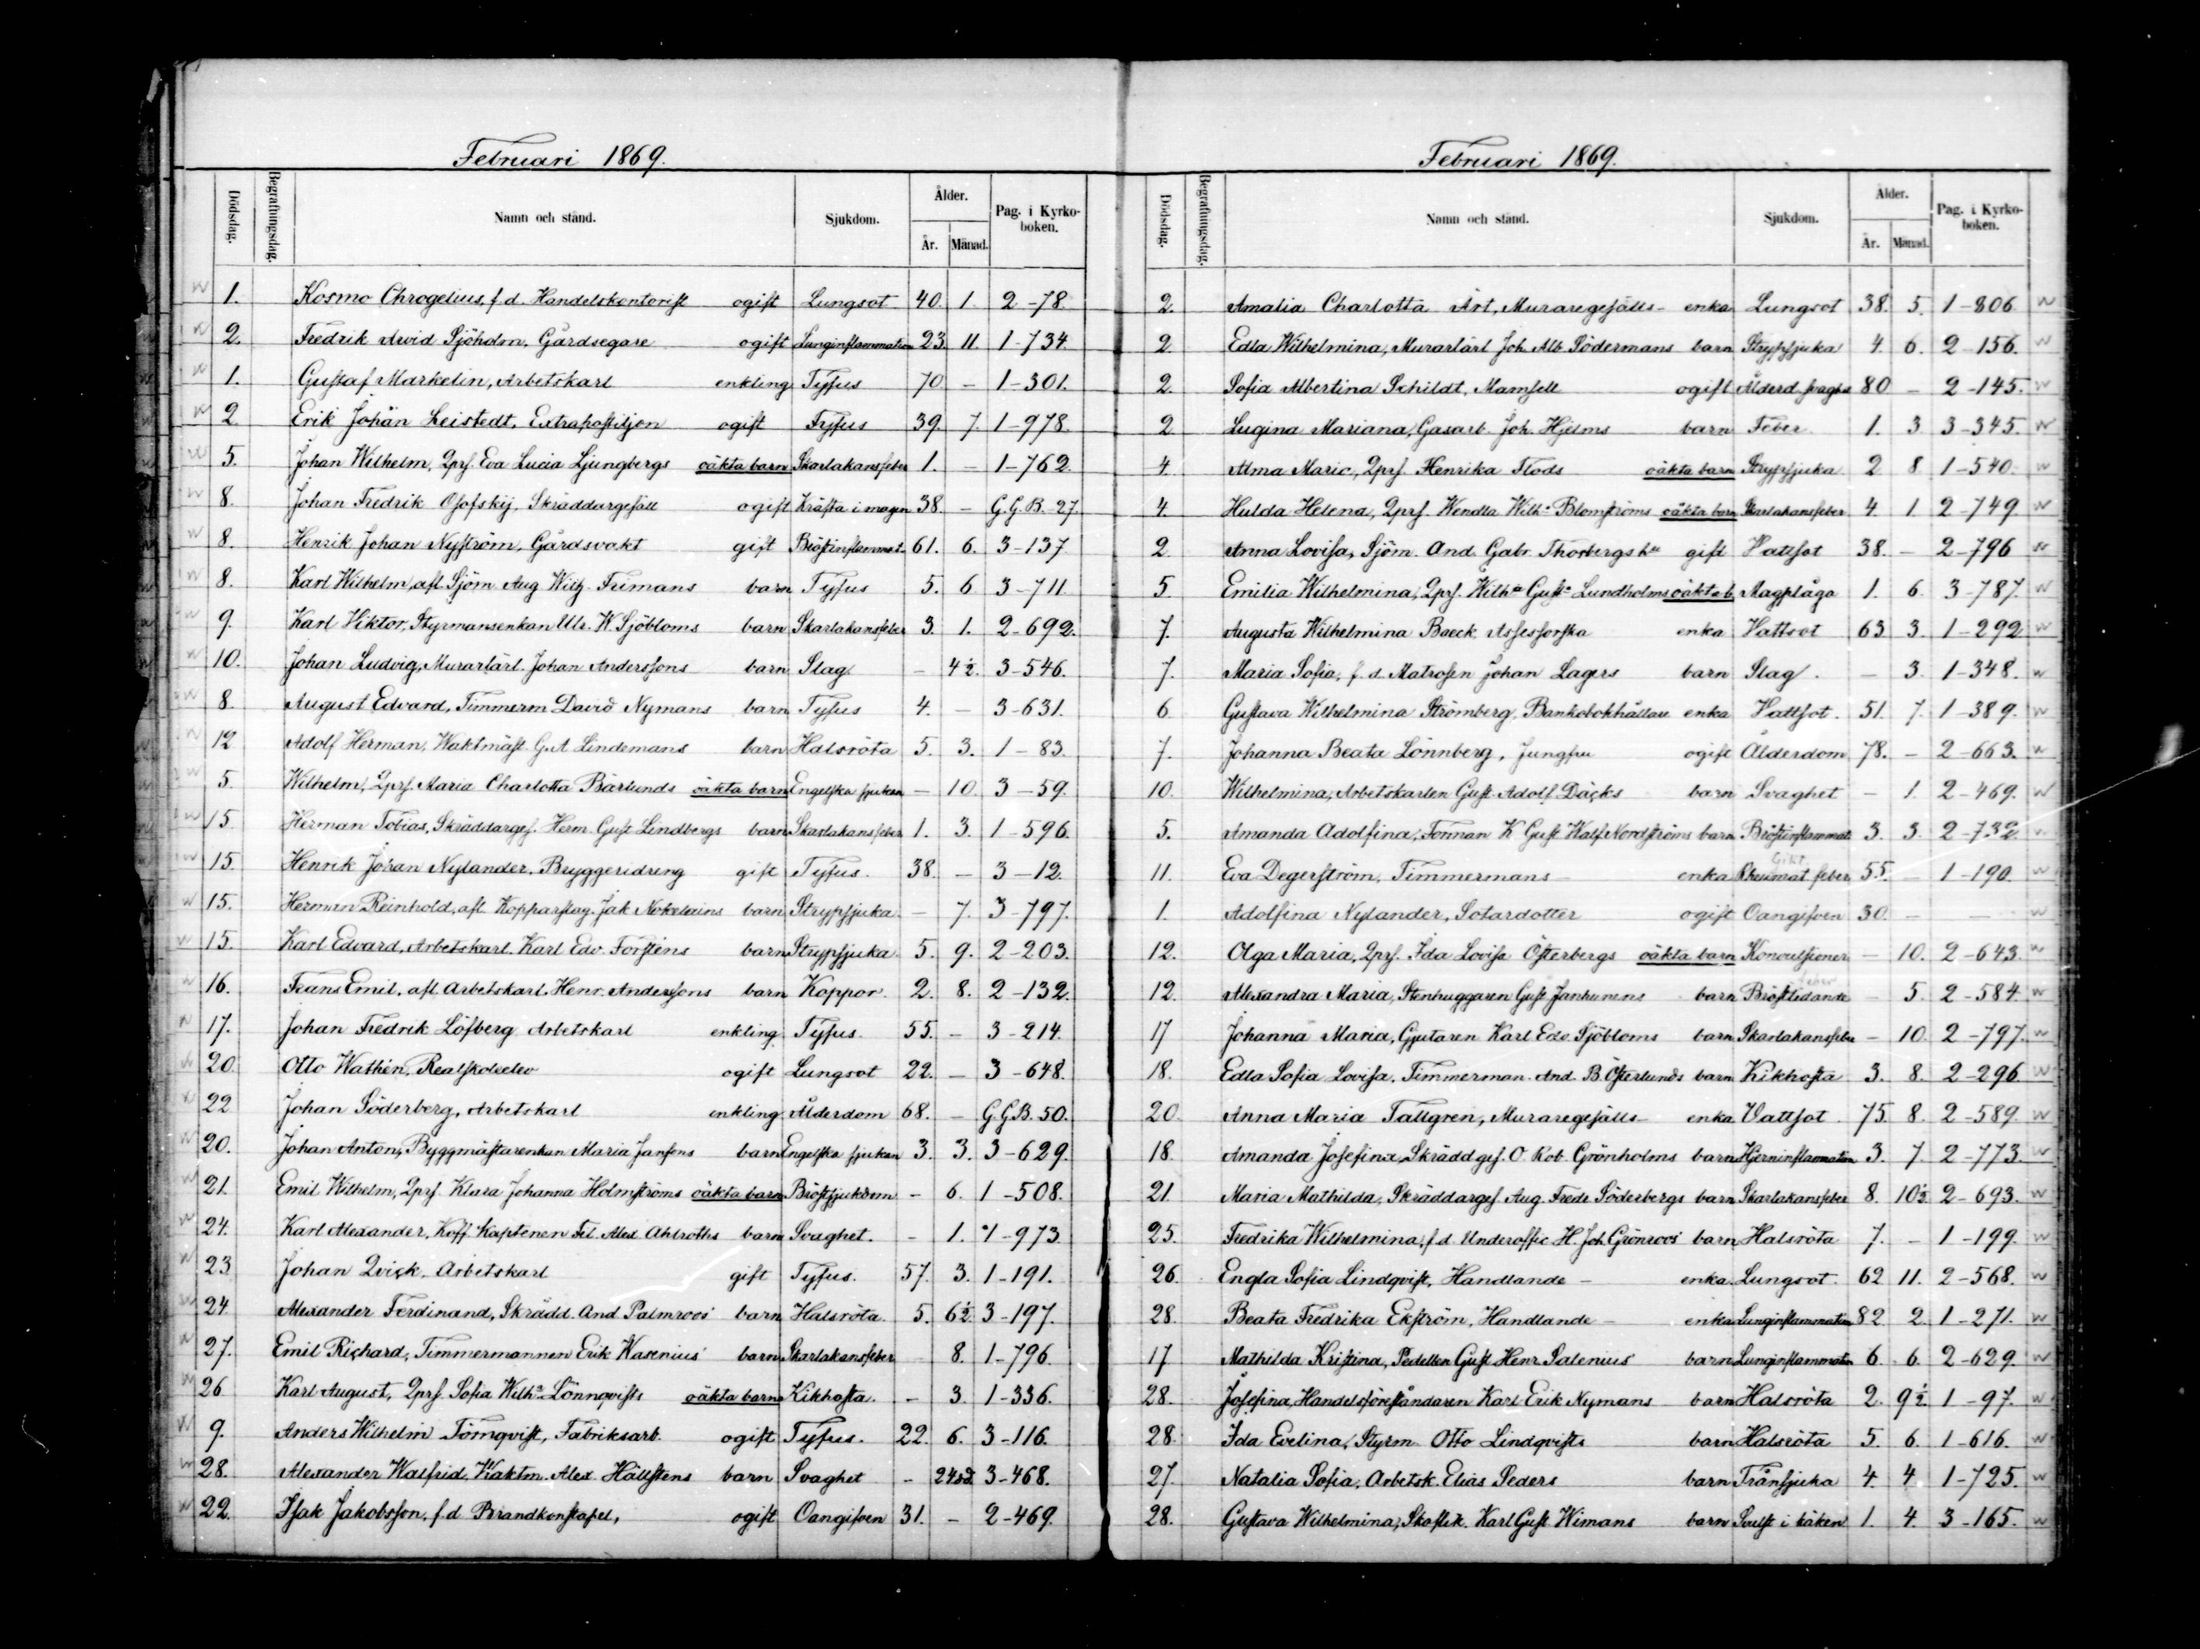 Februari 1869.
Dödsdag. Begrafningsdag. Namn och stånd. Sjukdom. Ålder. År. Månad. Pag. i Kyrkoboken.
1. Kosmo Chrogelius, f.d. Handelskontorist ogift Lungsot 40. 1. 2-78.
2. Fredrik Arvid Sjöholm, Gårdsegare ogift Lunginflammation 23. 11. 1-734.
1. Gustaf Markelin, Arbetskarl enkling Tyfus 70 - 1-301.
2. Erik Johan Leistedt, Extrapostiljon ogift Tyfus 39. 7. 1-978.
5. Johan Wilhelm, Qprs. Eva Lucia Ljungbergs oäkta barn Skarlakansfeber 1. - 1-762.
8. Johan Fredrik Ossofskij, Skräddargesäll ogift Kräfta i magen 38. - G.G.B.-27.
8. Henrik Johan Nyström, Gårdsvakt gift Bröstinflammat. 61. 6. 3-137.
8. Karl Wilhelm, afl. Sjöm. Aug. Wilh. Frimans barn Tyfus 5. 6. 3-711.
9. Karl Viktor, Styrmansenkan Ulr. W. Sjöbloms barn Skarlakansfeber 3. 1. 2-692.
10. Johan Ludvig, Murarlärl. Johan Anderssons barn Slag - 4 1/2. 3-546.
8. August Edvard, Timmerm David Nymans barn Tyfus 4. - 3-631.
12 Adolf Herman, Waktmäst. G.A. Lindemans barn Halsröta 5. 3. 1-83.
5. Wilhelm, Qprs. Maria Charlotta Bärlunds oäkta barn Engelska sjukan - 10. 3-59.
15. Herman Tobias, Skräddarges. Herm. Gust Lindbergs barn Skarlakansfeber 1. 3. 1-596.
15. Henrik Johan Nylander, Bryggeridreng gift Tyfus. 38. - 3-12.
15. Herman Reinhold, afl. Kopparslag. Jak barn Strypsjuka - 7. 3-797.
15. Karl Edvard, Arbetskarl. Karl Edv. Forsténs barn Strypsjuka 5. 9. 2-203.
16. Frans Emil, afl. Arbetskarl. Henr. Anderssons barn Koppor. 2. 8. 2-132.
17. Johan Fredrik Löfberg Arbetskarl enkling Tyfus. 55. - 3-214.
20. Otto Wathén, Realskoleelev ogift Lungsot 22. - 3-648.
22 Johan Söderberg, Arbetskarl enkling Ålderdom 68. - G.G.B. 50.
20. Johan Anton, Byggmästarenkan Maria Jansons barn Engelska sjukan 3. 3. 3-629.
21. Emil Wilhelm, Qprs. Klara Johanna Holmströms oäkta barn Bröstsjukdom - 6. 1-508.
24. Karl Alexander, Koff. Kaptenen Alex Ahlroths barn Svaghet. - 1. 1-973
23 Johan Qvick, Arbetskarl gift Tyfus. 57. 3. 1-191.
24 Alexander Ferdinand, Skrädd. And Palmroos' barn Halsröta. 5. 6 1/2 3-197.
27. Emil Richard, Timmermannen Erik Wasenius' barn Skarlakansfeber 8. 1-796.
26 Karl August, Qprs. Sofia Wilhᵃ Lönnqvists oäkta barn Kikhosta. - 3. 1-336.
9. Anders Wilhelm Törnqvist, Fabriksarb. ogift Tyfus. 22. 6. 3-116.
28. Alexander Walfrid, Waktm. Alex. Hällstens barn Svaghet - 24 3-468.
22. Isak Jakobsson, f.d. Brandkonstapel, ogift Oangifven 31. - 2-469.
Februari 1869.
Dödsdag. Begrafningsdag. Namn och stånd. Sjukdom. Ålder. År. Månad. Pag. i Kyrkoboken.
2. Amalia Charlotta Ärt, Muraregesälls- enka Lungsot 38. 5. 1-806
2. Edla Wilhelmina, Murarlärl Joh. Alb. Södermans barn Strypsjuka 4. 6. 2-156.
2. Sofia Albertina Schildt, Mamsell ogift Ålderd. svaghet 80 - 2-145.
2. Lugina Mariana, Gasarb. Joh. Hjelms barn Feber 1. 3 3-345.
4. Alma Marie, Qprs. Henrika Flods oäkta barn Strypsjuka 2 8 1-540
4. Hulda Helena, Qprs. Wendla Wilhᵃ Blomströms oäkta barn Skarlakansfeber 4. 1. 2-749
2 Anna Lovisa, Sjöm. And. Gabr. Thorbergs hu gift Vattsot 38. - 2-796
5 Emilia Wilhelmina, Qprs. Wilhᵃ Gustᵃ Lundholms oäkta b. Magplåga 1. 6. 3-787.
7. Augusta Wilhelmina Baeck, Assessorska enka Vattsot 63 3. 1-292
7. Maria Sofia, f.d. Matrosen Johan Lagers barn Slag. - 3. 1-348.
6 Gustava Wilhelmina Strömberg, Bankobokhållare enka Vattsot. 51. 7. 1-389.
7. Johanna Beata Lönnberg, Jungfru ogift Ålderdom 78. - 2-663.
10. Wilhelmina, Arbetskarlen Gust. Adolf Däcks barn Svaghet - 1. 2-469.
5. Amanda Adolfina, Forman K. Gust Walf. Nordströms barn Bröstinflammat. 3. 3. 2-732
11. Eva Degerström, Timmermans- enka Rheumat. feber Gikt 55. - 1-190.
1. Adolfina Nylander, Sotardotter ogift Oangifven 30. - -
12. Olga Maria, Qprs. Ida Lovisa Österbergs oäkta barn Konvulsioner - 10. 2-643.
12. Alexandra Maria, Stenhuggaren Gust Janhunens barn Bröstlidande - 5. 2-584.
17 Johanna Maria, Gjutaren Karl Edv. Sjöbloms barn Skarlakansfeber - 10. 2-797.
18. Edla Sofia Lovisa, Timmerman. And. B. Österlunds barn Kikhosta 3. 8. 2-296.
20. Anna Maria Tallgren, Muraregesälls- enka Vattsot. 75. 8. 2-589.
18. Amanda Josefina, Skrädd.ges. O. Rob. Grönholms barn Hjerninflammation 3. 7. 2-773.
21. Maria Mathilda, Skräddarges. Aug. Fredr. Söderbergs barn Skarlakansfeber 8. 10 1/2. 2-693.
25. Fredrika Wilhelmina, f.d. Underoffic. H. Joh. Grönroos' barn Halsröta 7. - 1-199.
26. Engla Sofia Lindqvist, Handlande - enka Lungsot. 62 11. 2-568.
28. Beata Fredrika Ekström, Handlande - enka Lunginflammation 82 2. 1-271.
17 Mathilda Kristina, Pedellen Gust Henr Salenius' barn Lunginflammation 6. 6. 2-629.
28. Josefina, Handelsföreståndaren Karl Erik Nymans barn Halsröta 2. 9 1/2 1-97.
28. Ida Evelina, Styrm. Otto Lindqvists barn Halsröta 5. 6. 1-616.
27. Natalia Sofia, Arbetsk. Elias Peders barn Trånsjuka 4. 4. 1-725.
28. Gustava Wilhelmina, Karl Gust. Wimans barn Svulst i käken 1. 4. 3-165.